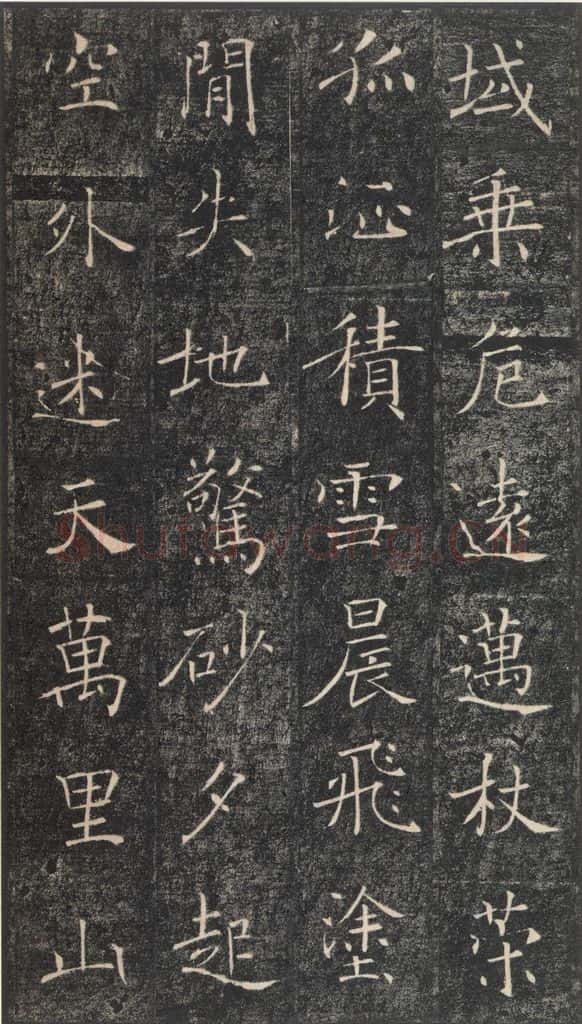 域乗危遠邁杖茦
孤征積雪晨飛塗
閒失地驚砂夕起
空外迷天萬里山
shufawang.cn